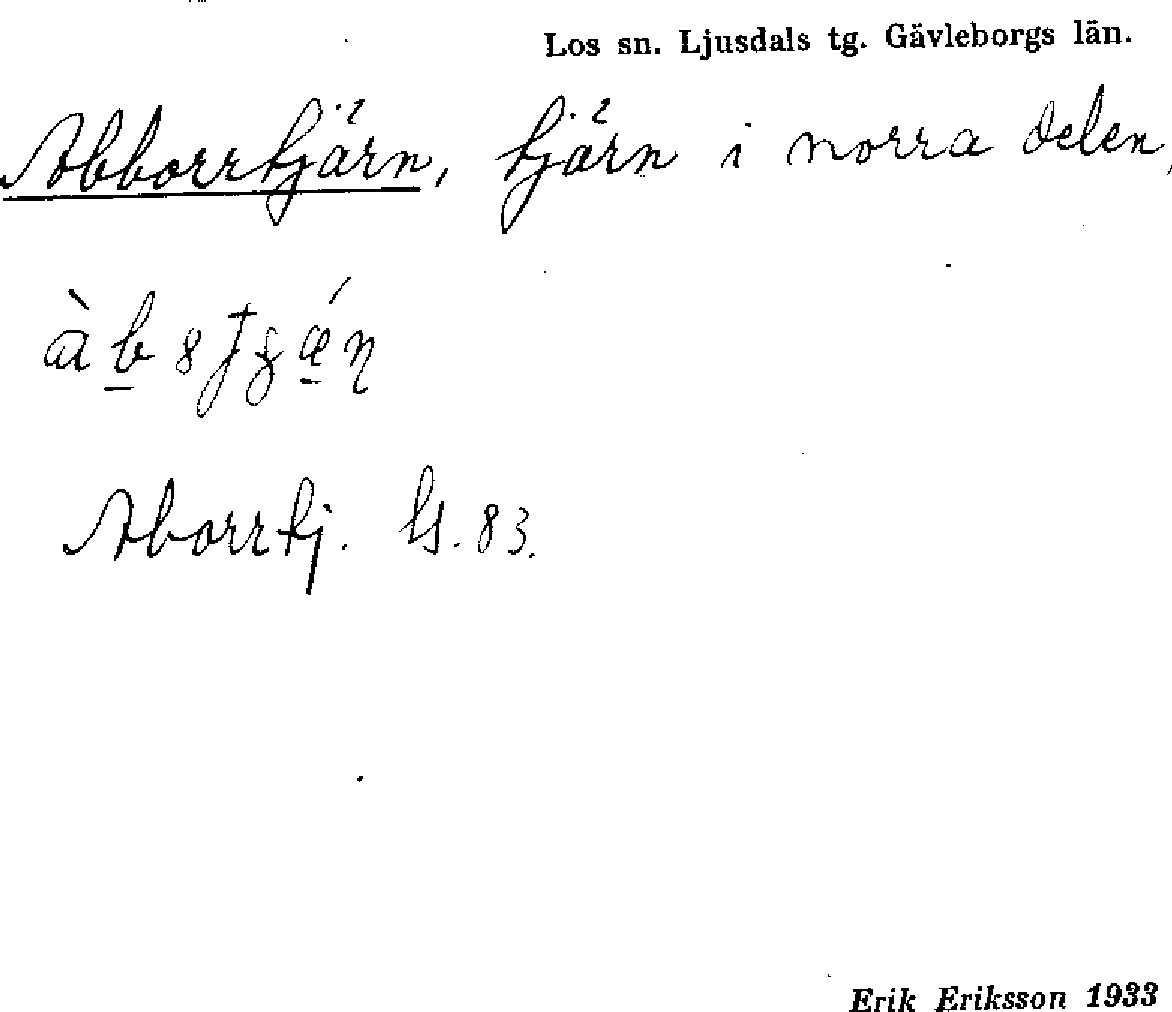 Los sn. Ljusdals tg. Gävleborgs län.
Abborrtjärn, tjärn i norra delen,
Aborrtj. 83.
Erik Eriksson 1933